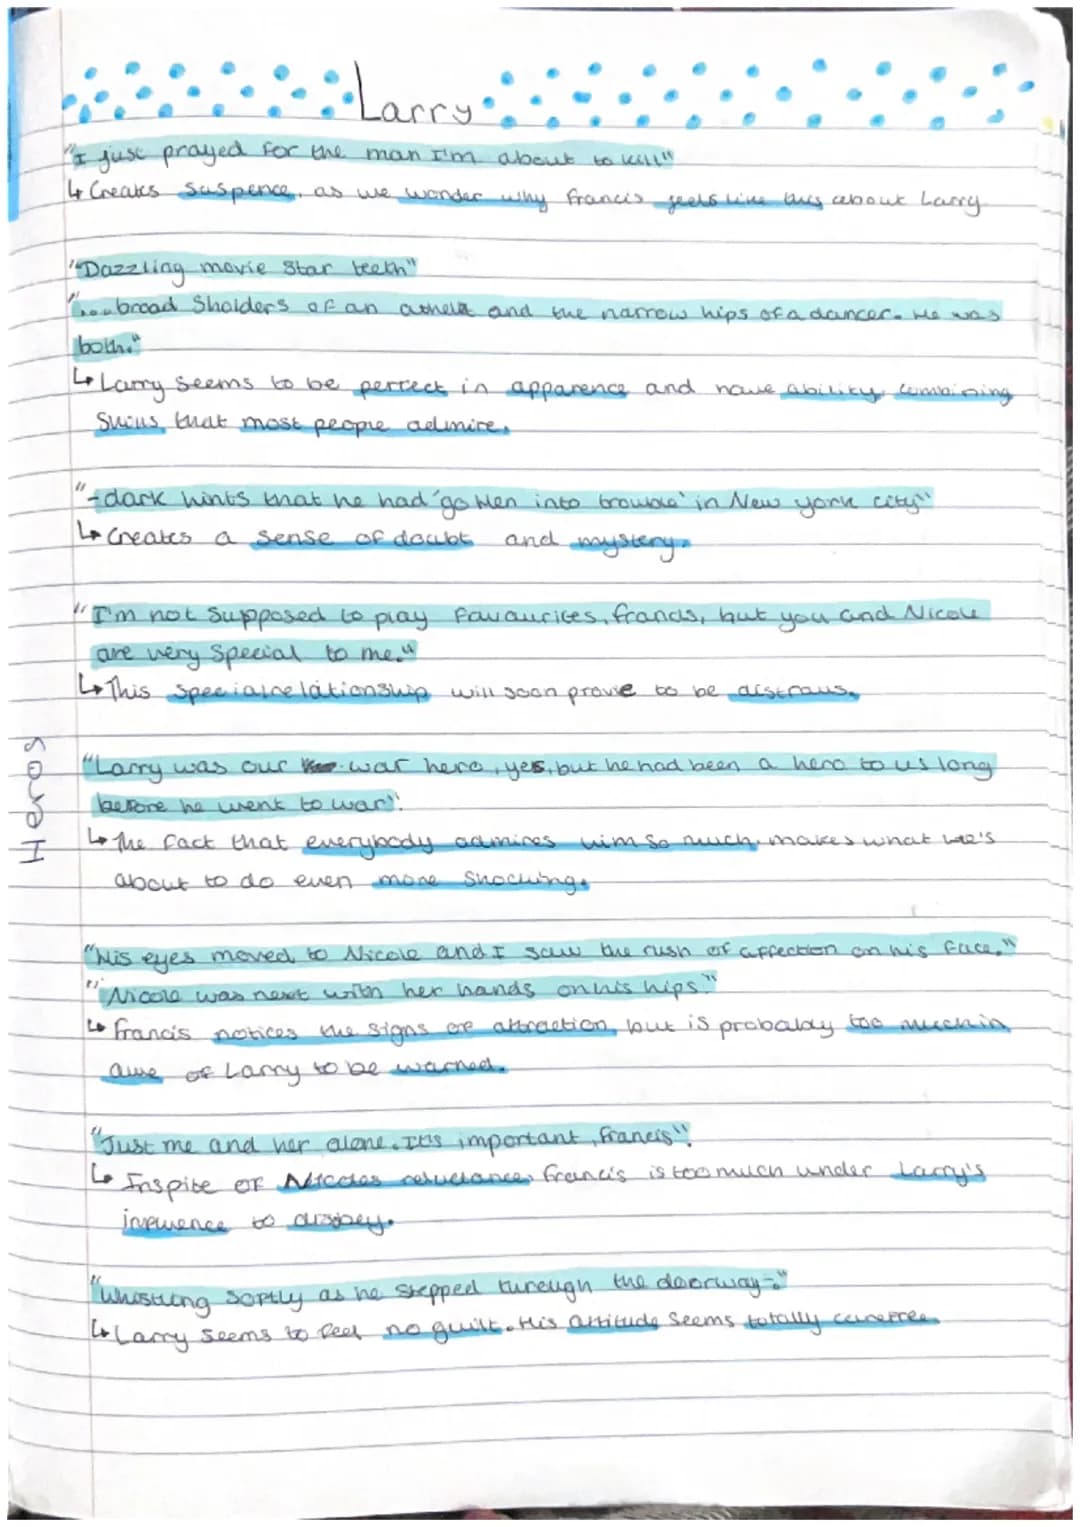 Larry
"I just prayed for the man I'm about to kill"
↳ Creates suspence, as we wonder why Francis feels like this about Larry
"Dazzling movie star teeth"
"...broad Sholders of an athelt and the narrow hips of a dancer. He was
both."
↳ Larry seems to be perfect in apparence and have ability, combining
Skills that most people admire.
"-dark hints that he had 'gotten into trouble' in New york city"
↳ Creates a sense of doubt and mystery.
"I'm not supposed to play favourites, francis, but you and Nicole
are very special to me."
↳ This special relationship will soon provie to be distraus.
"Larry was our war hero, yes, but he had been a hero to us long
before he went to war".
↳ The fact that everybody admires him so much, makes what he's
about to do even more shocking.
Heros
"His eyes moved to Nicole and I saw the rush of affection on his face."
"Nicole was next with her hands on his hips."
↳ francis notices the signs of attraction, but is probalby too much in
awe of Larry to be warned.
"Just me and her alone. It's important, Francis".
↳ Inspite of Nicoles reluctance, francis is too much under Larry's
influence to disobey.
"Whistling softly as he stepped through the doorway-."
↳ Larry seems to feel no guilt. His attitude seems totally carefree.